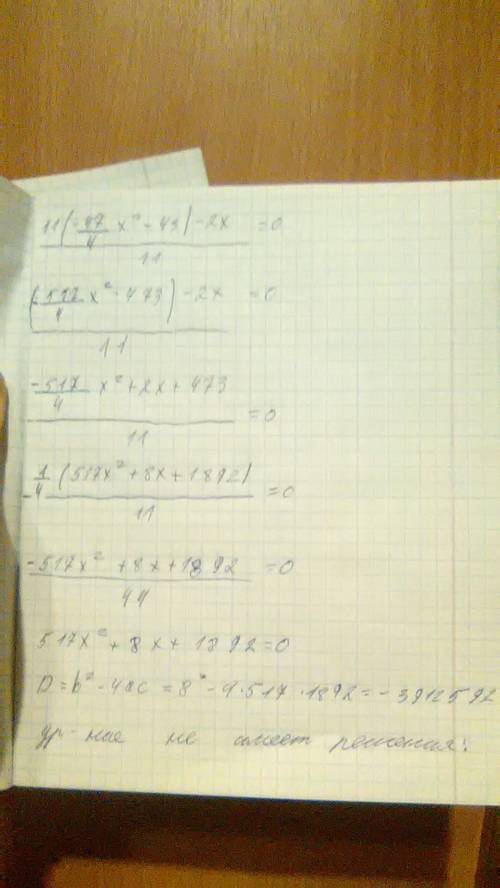 11(-47/4 x² - 43) - 2x / 11 = 0
(-517/4 x² - 473) - 2x / 11 = 0
-517/4 x² + 2x + 473 / 11 = 0
-1/4 (517x² + 8x + 1892) / 11 = 0
-517x² + 8x + 1892 / 44 = 0
517x² + 8x + 1892 = 0
D = b² - 4ac = 8² - 4·517·1892 = -3912592
ур-ние не имеет решения!